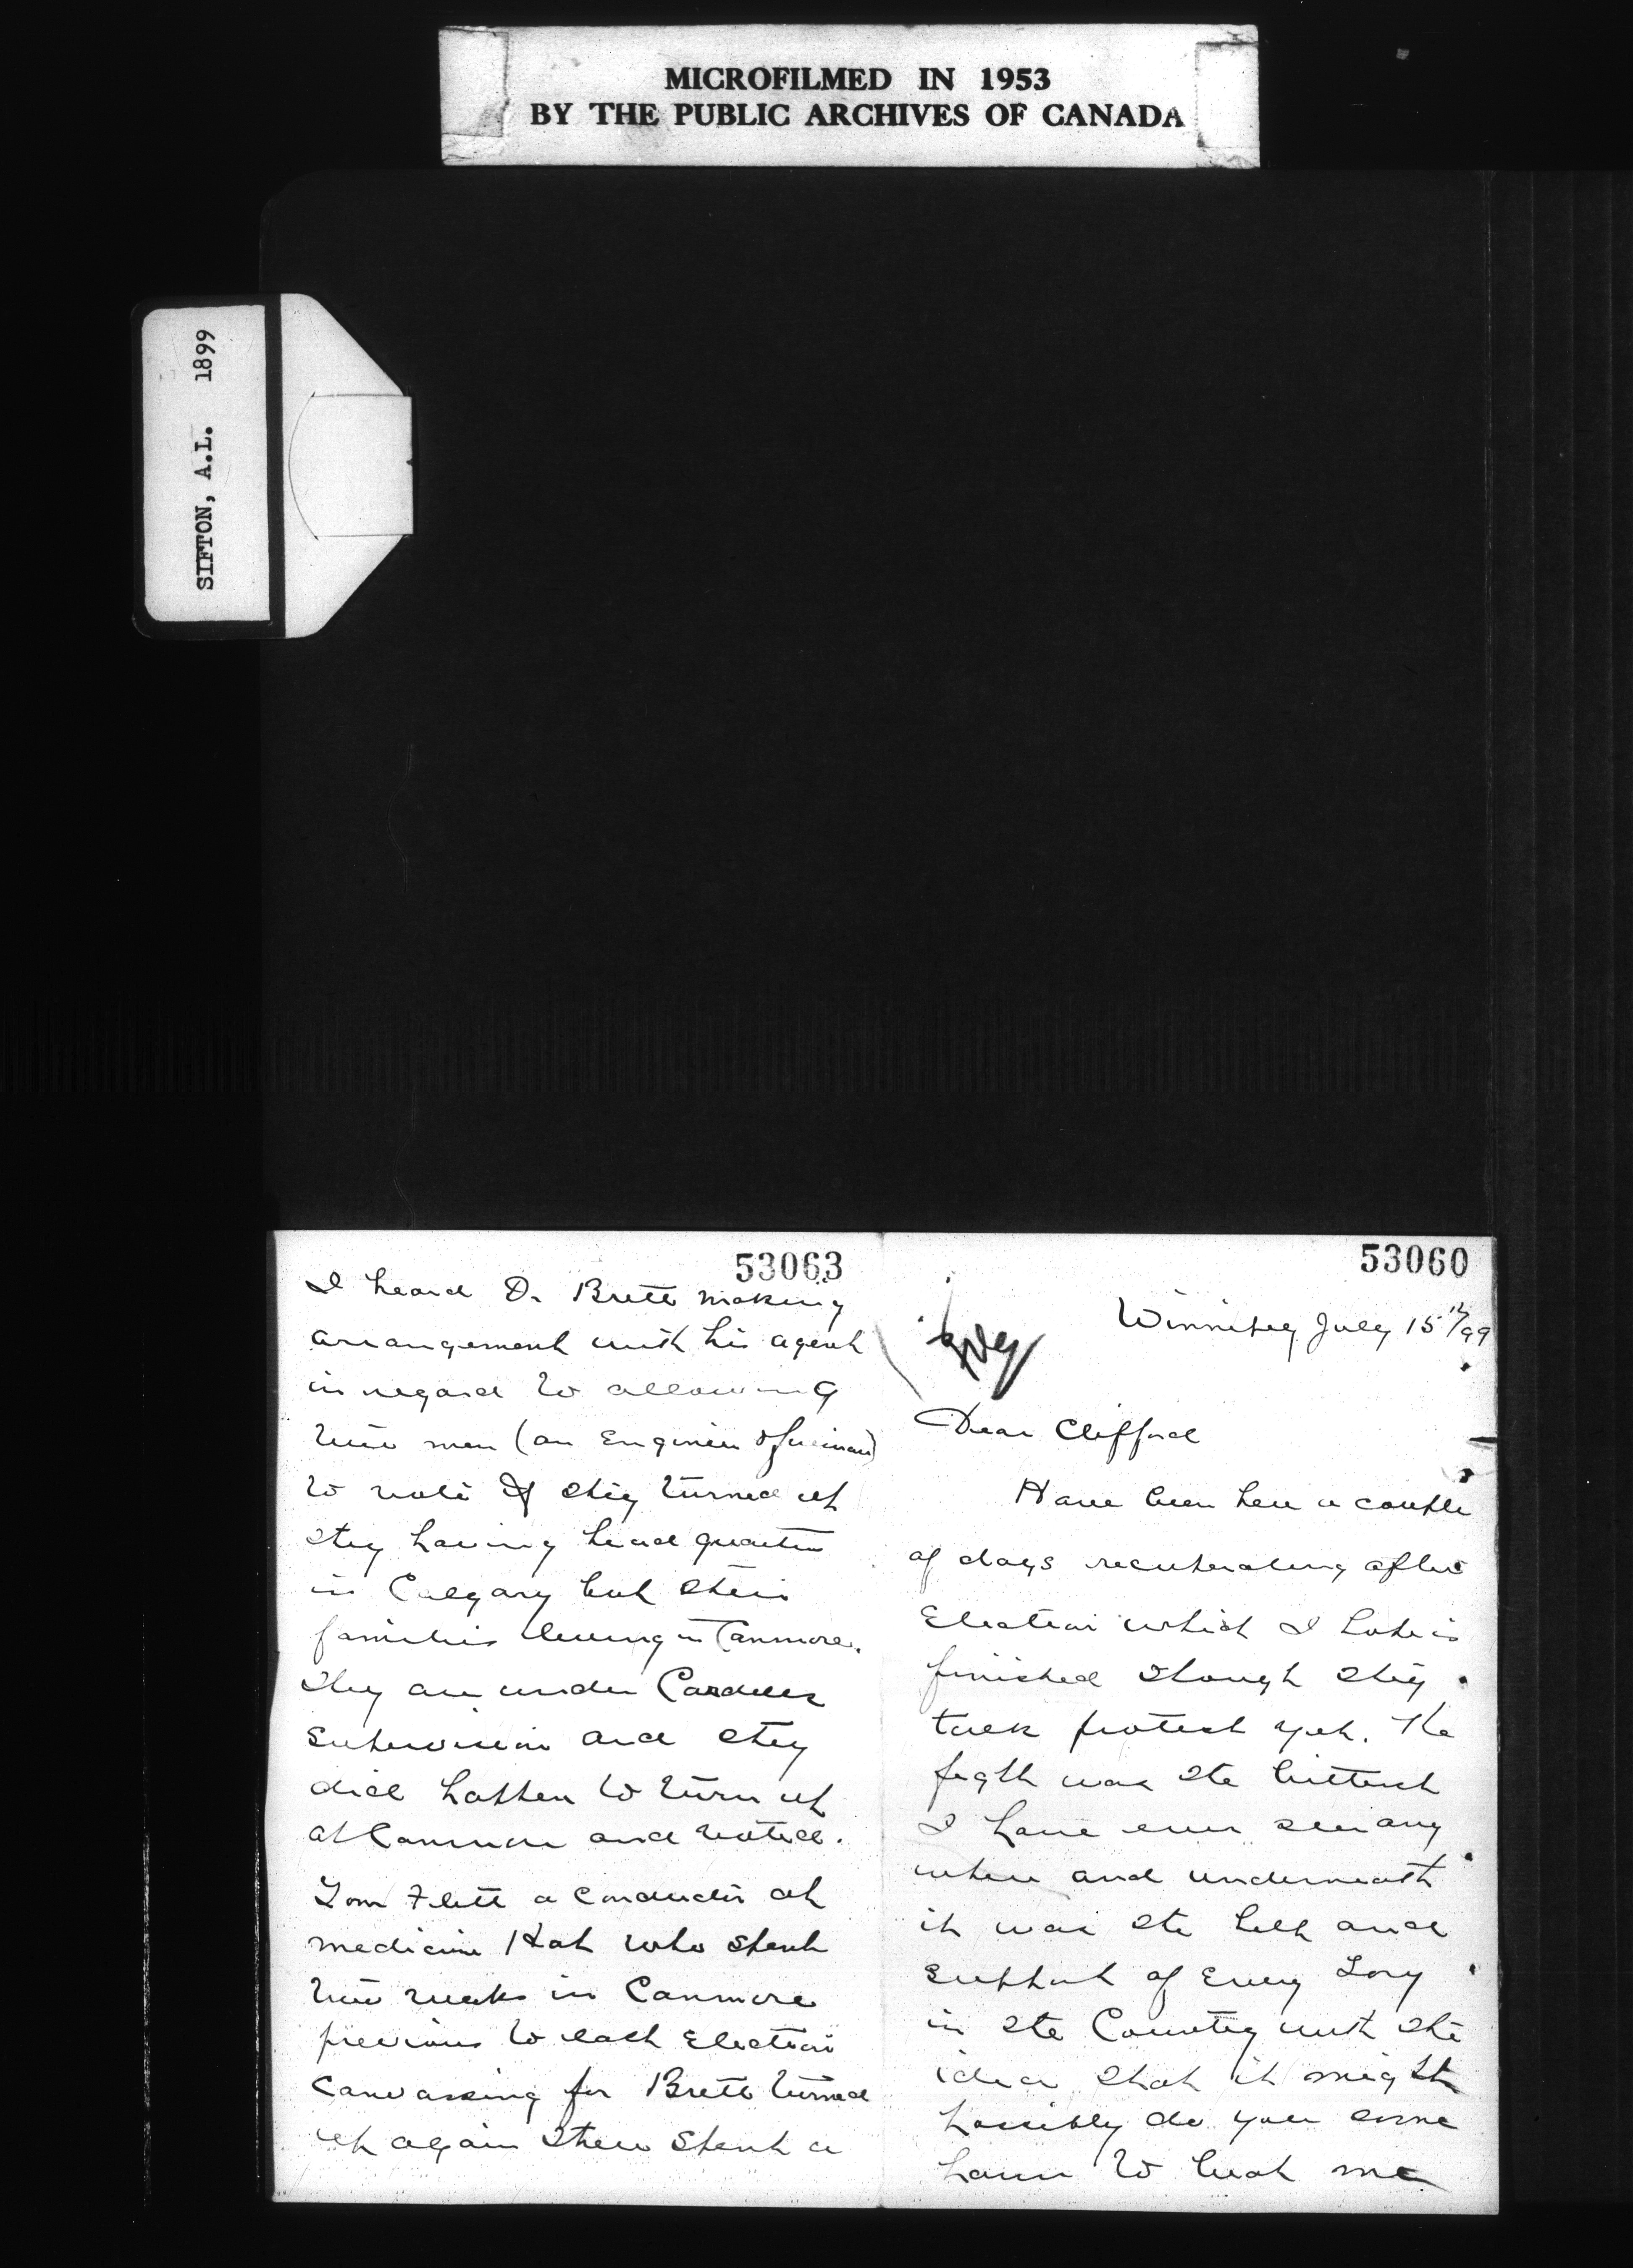 MICROFILMED IN 1953
BY THE PUBLIC ARCHIVES OF CANADA
SIFTON, A.L. 1899
53063
I heard Dr Brett making
arrangement with his agent
in regard to allowing
two men (an Engineer & fireman)
to vote if they turned up
they having head quarters
in Calgary but their
families living in Canmore.
They are under Cardells
Supervision and they
did happen to turn up
at Canmore and voted.
Tom Flett a Conductor at
Medicine Hat who spent
two weeks in Canmore
previous to each Election
Canvassing for Brett turned
up again there spent a
53060
Winnipeg July 15th/99
Dear Clifford
Have been here a couple
of days recuperating after
Election which I hope is
finished though they
talk protest yet. The
fight was the bitterest
I have ever seen any
where and underneath
it was the help and
support of Every Tory
in the Country with the
idea that it might
possibly do you some
harm to beat me